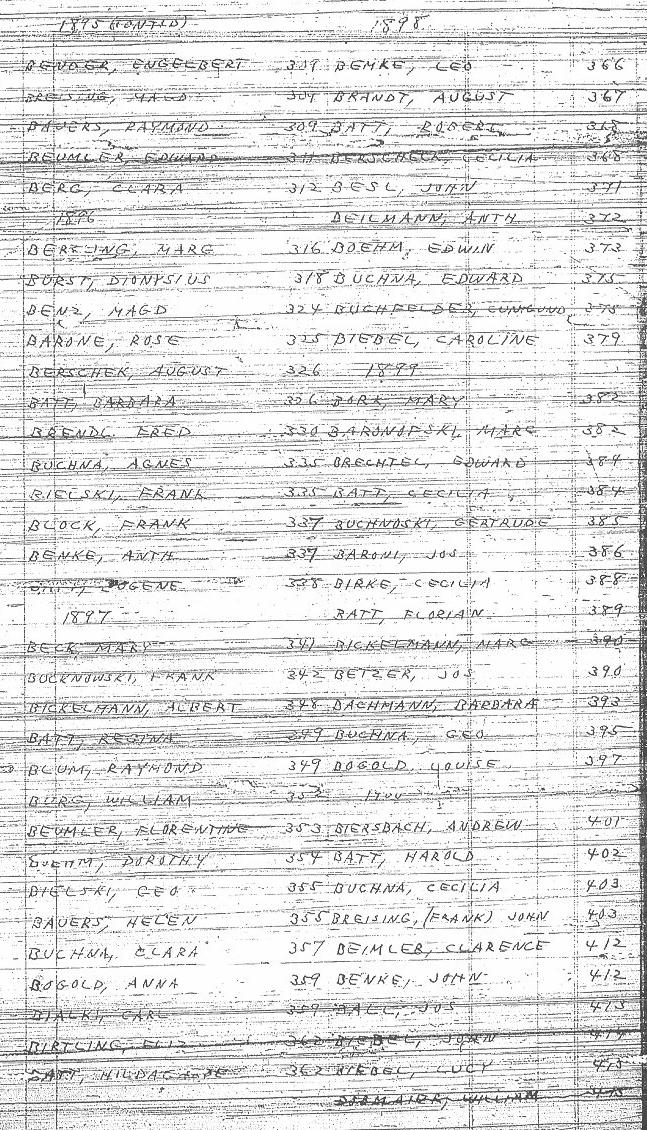 1895 (CONT'LD) 1898
BENDER, ENGELBERT 309 BEMKE, LEO 366
BREISING, MAGD 309 BRANDT, AUGUST 367
BAUERS, RAYMOND 309 BATT, ROBERT 368
BEUMLER, EDWARD 311 BERSCHECK, CECILIA 368
BERG, CLARA 312 BESL, JOHN 371
1896 BEILMANN, ANTH 372
BERTLING, MARG 316 BOEHM, EDWIN 373
BURST, DIONYSIUS 318 BUCHNA, EDWARD 375
BENZ, MAGD 324 BUCHFELDER, CUNIGUND 375
BARONE, ROSE 325 BIEBEL, CAROLINE 379
BERSCHEK, AUGUST 326 1899
BATT, BARBARA 326 BORK, MARY 382
BRENDL FRED 330 BARONOFSKI, MARG 382
BUCHNA, AGNES 335 BRECHTEL, EDWARD 384
BIELSKI, FRANK 335 BATT, CECILIA 384
BLOCK, FRANK 337 BUCHNOSKI, GERTRUDE 385
BENKE, ANTH 337 BARONI, JOS 386
EUGENE 338 BIRKE, CECILIA 388
1897 BATT, FLORIAN 389
BECK, MARY 341 BICKELMANN, MARG 390
BUCKNOWSKI, FRANK 342 BETZER, JOS 390
BICKELMANN, ALBERT 348 BACHMANN, BARBARA 393
BATT, REGINA 349 BUCHNA, GEO 395
BLUM, RAYMOND 349 BOGOLD, LOUISE 397
BURG, WILLIAM 1900
BEUMLER, FLORENTINE 353 BIERSBACH, ANDREW 401
BOEHM, DOROTHY 354 BATT, HAROLD 402
BIELSKI, GEO 355 BUCHNA, CECILIA 403
BAUERS, HELEN 355 BREISING, (FRANK) JOHN 403
BUCHNA, CLARA 357 BEIMLER, CLARENCE 412
BOGOLD, ANNA 359 BENKE, JOHN 412
BIALKI, CARL 359 BALL, JOS 413
BIRTLING, ELIZ 362 BIEBEL, JOHN 414
BATT, 362 BIEBEL, LUCY 415
WILLIAM 415